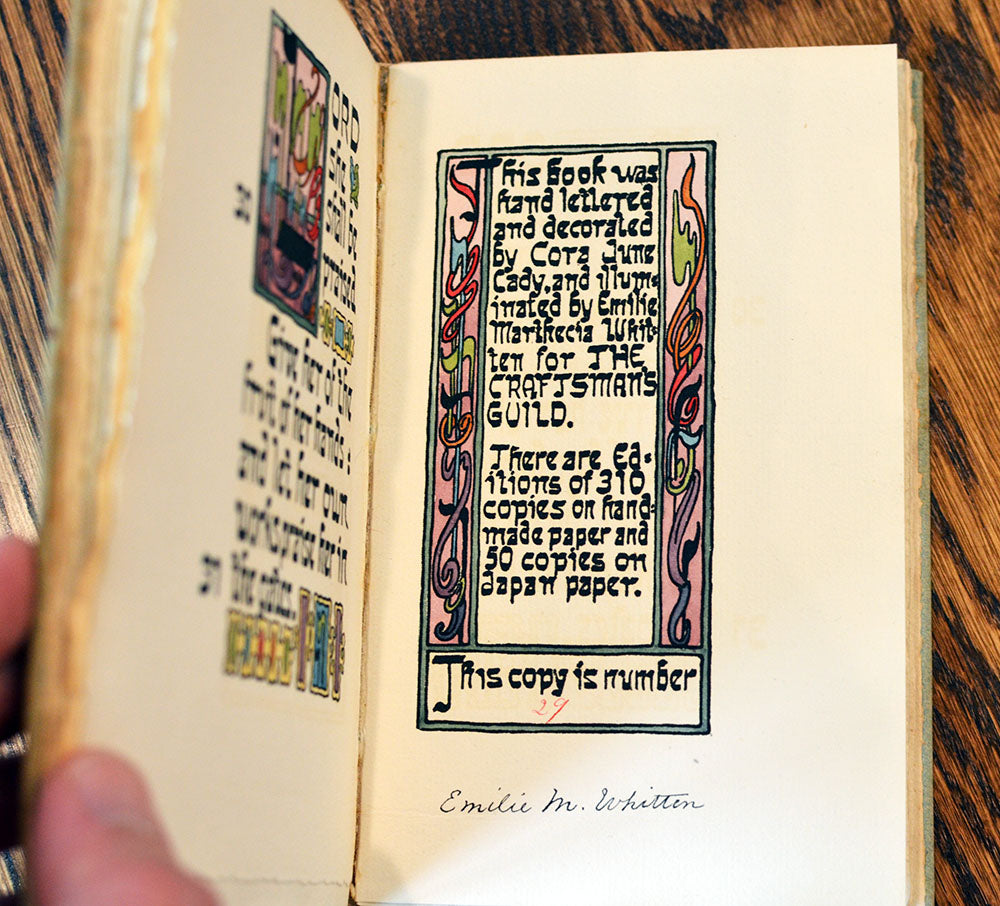 ORD
she
30
shall be
praised
Give her of the
fruit of her hands:
and let her own
works praise her in
31 the gates.
This book was
hand lettered
and decorated
by Cora June
Cady, and illum-
inated by Emilie
Marthecia Whit-
ten for THE
CRAFTSMAN'S
GUILD.
There are Ed-
itions of 310
copies on hand-
made paper and
50 copies on
Japan paper.
This copy is number
29
Emilie M. Whitten